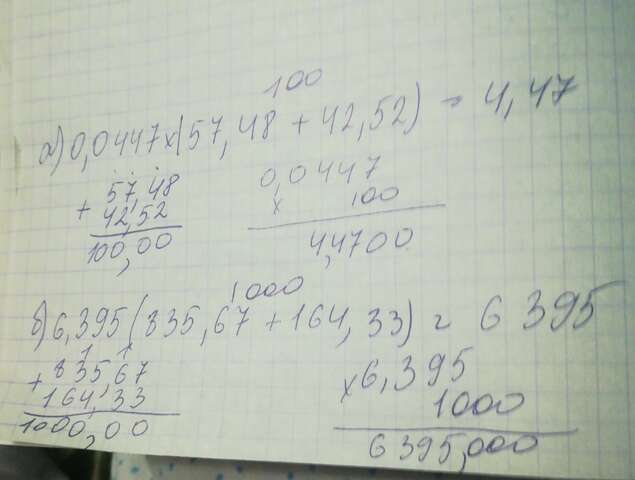 100
а) 0,0447 x (57,48 + 42,52) = 4,47
57,48
+ 42,52
100,00
0,0447
x 100
4,4700
1000
б) 6,395 (835,67 + 164,33) = 6395
1 1
+ 835,67
164,33
1000,00
x 6,395
1000
6395,000